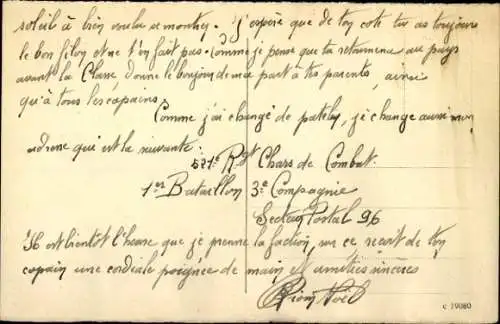 soleil à bien voulu se montrer. J'espère que de ton coté tu as toujours
le bon filon et ne t'en fait pas. Comme je pense que tu retournera au pays
avant la Classe donne le bonjour de ma part à tes parents, ainsi
qu'à tous les copains
Comme j'ai changé de patelin, je change aussi mon
adresse qui est la suivante :
521e Rgt Chars de Combat.
1er Bataillon 3e Compagnie
Secteur Postal 96
Il est bientôt l'heure que je prenne la faction, sur ce reçoit de ton
copain une cordiale poignée de main et amitiés sincères
Noël
c 19080